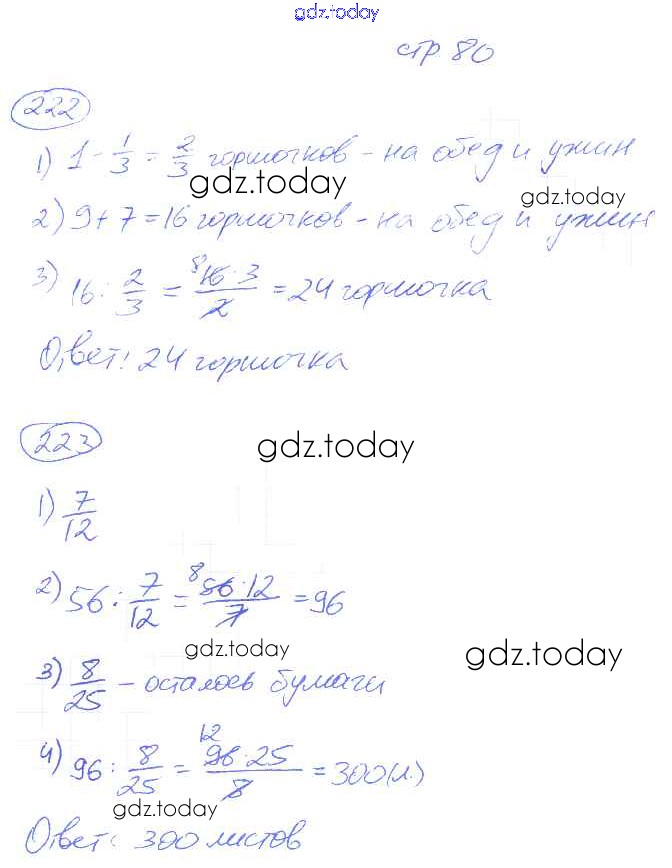 gdz.today
стр 80
222
1) 1 - 1/3 = 2/3 горшочков - на обед и ужин
gdz.today
gdz.today
2) 9 + 7 = 16 горшочков - на обед и ужин
3) 16 : 2/3 = 8 16 · 3 / 2 = 24 горшочка
Ответ: 24 горшочка
223
gdz.today
1) 7/12
2) 56 : 7/12 = 8 56 · 12 / 7 = 96
gdz.today
gdz.today
3) 8/25 - осталось бумаги
4) 96 : 8/25 = 12 96 · 25 / 8 = 300 (л.)
gdz.today
Ответ: 300 листов